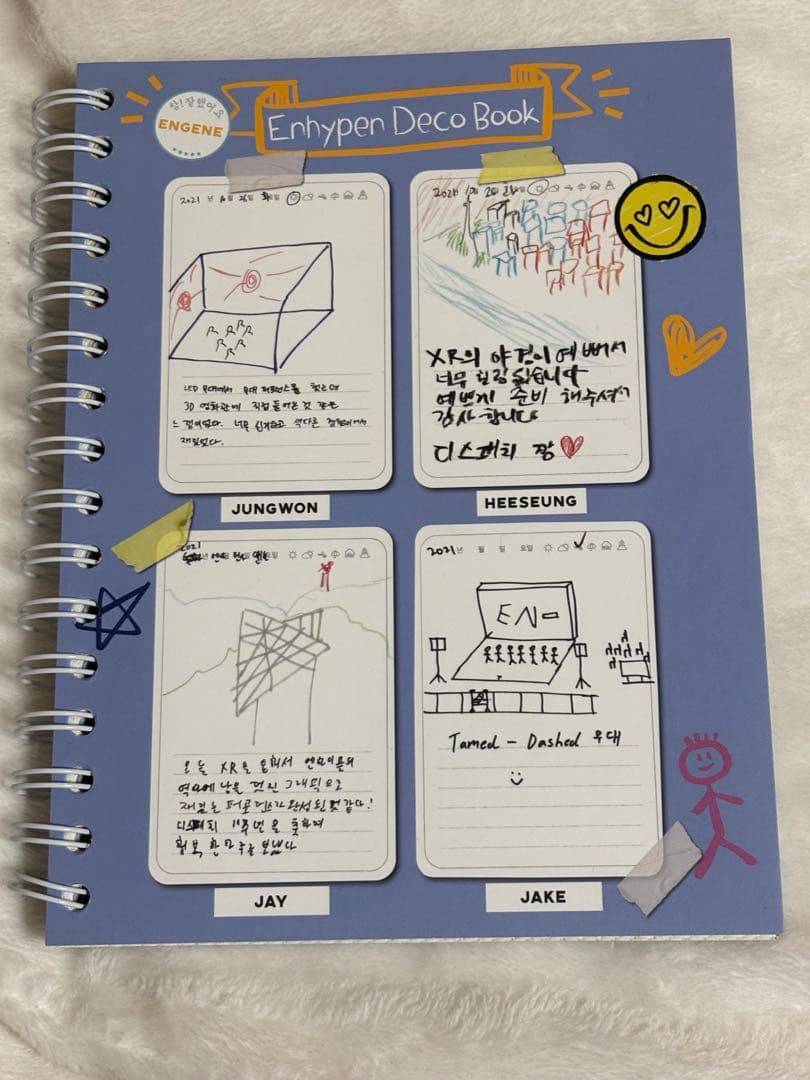 참! 잘했어요
ENGENE
Enhypen Deco Book
2021 년 월 일 요일
LED 무대에서 무대 퍼포먼스를 했는데
3D 영화관에 직접 들어온 것 같은
느낌이었다. 너무 신기하고 색다른
재밌었다.
JUNGWON
2021
XR의 야경이 예뻐서
너무
예쁘게 준비 해주셔서
감사합니다
디스패치 짱
HEESEUNG
2021
오늘 XR을 통해서 엔하이픈의
역사에 남을 멋진 그래픽으로
재밌는 퍼포먼스가 완성된 것 같다!
디스패치 11주년을 축하하며
행복한 주를 보냈다
JAY
2021년 월 일 요일
EN-
Tamed - Dashed 무대
JAKE